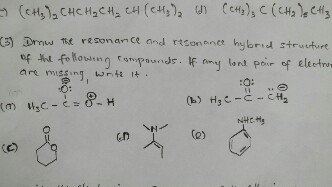 (CH₃)₂CHCH₂CH₂CH(CH₃)₂ (d) (CH₃)₃C(CH₂)₈CH₃
(3) Draw the resonance and resonance hybrid structure
of the following compounds. If any lone pair of electron
are missing, write it.
(a) H₃C – C = O – H (b) H₃C – C – CH₂
:O: :O:
NHCH₃
(c) O O (d) N (e)